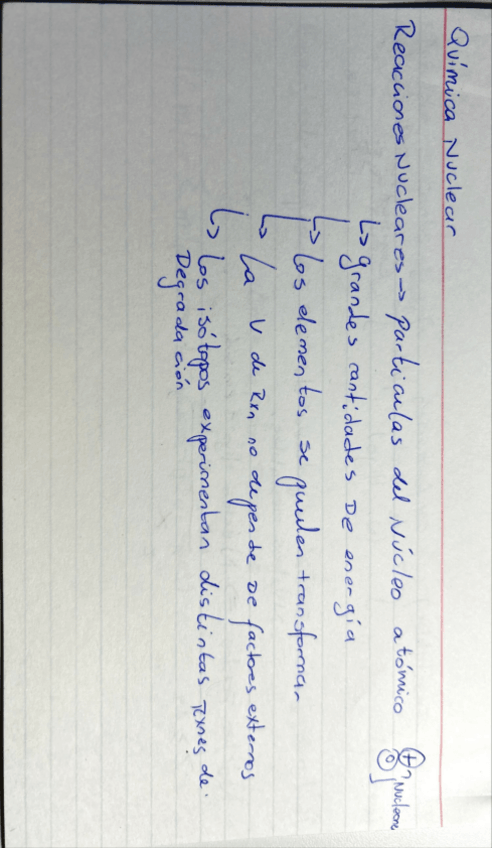 Química Nuclear
Reacciones Nucleares → partículas del Núcleo atómico + 0 Nucleone
↳ grandes cantidades De energía
↳ Los elementos se pueden transformar
↳ La V de Rxn no depende De factores externos
↳ Los isótopos experimentan distintas de
Degradación